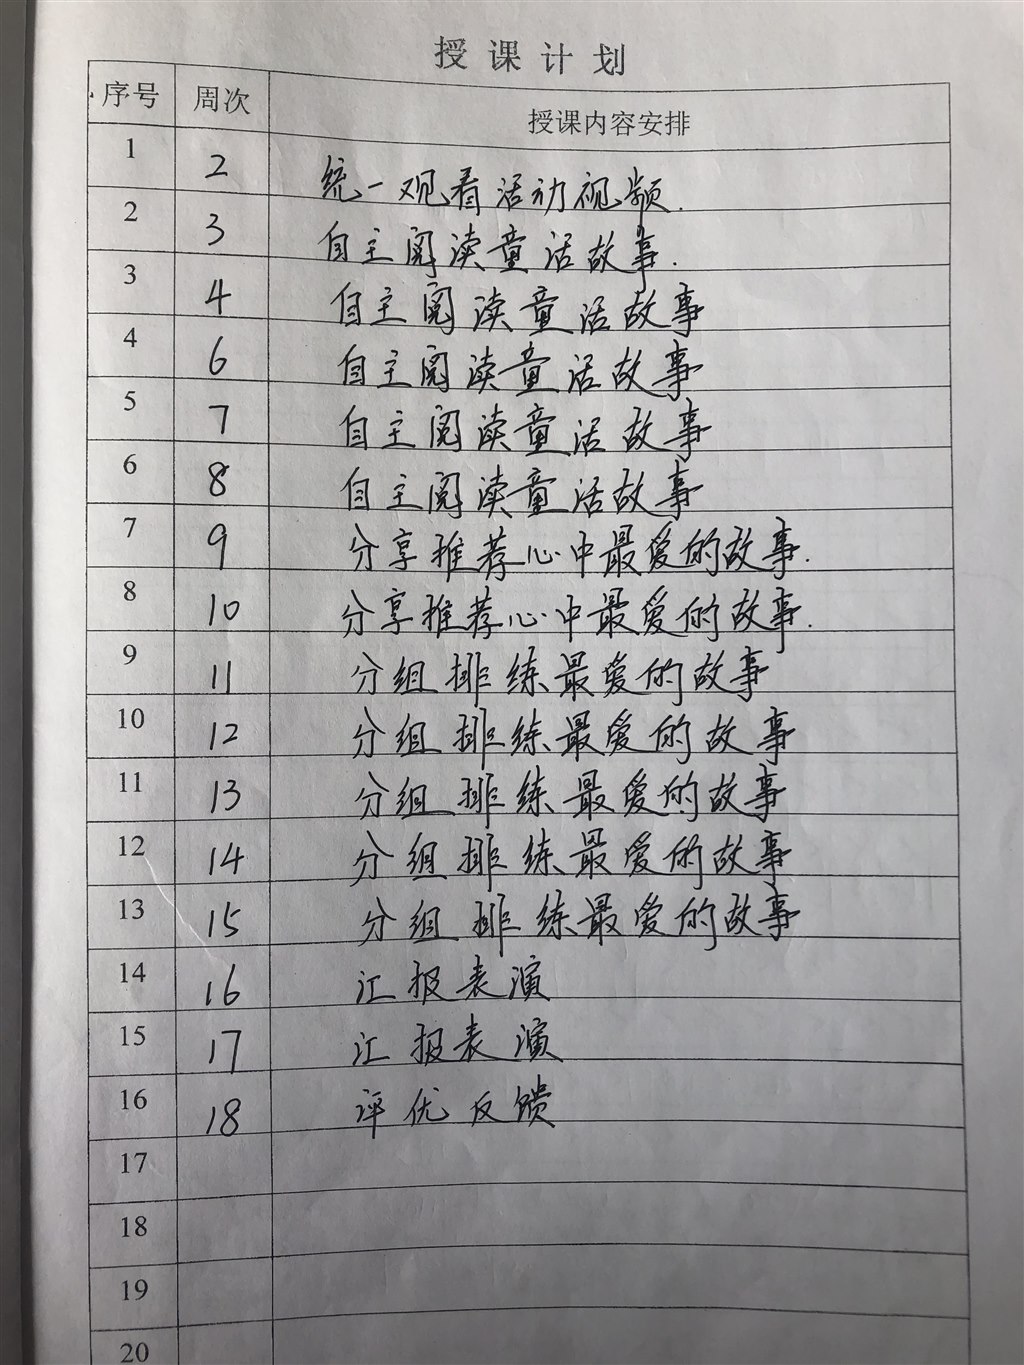 授课计划
序号 周次 授课内容安排
1 2 统一观看活动视频.
2 3 自主阅读童话故事.
3 4 自主阅读童话故事
4 6 自主阅读童话故事
5 7 自主阅读童话故事
6 8 自主阅读童话故事
7 9 分享推荐心中最爱的故事.
8 10 分享推荐心中最爱的故事.
9 11 分组排练最爱的故事
10 12 分组排练最爱的故事
11 13 分组排练最爱的故事
12 14 分组排练最爱的故事
13 15 分组排练最爱的故事
14 16 汇报表演
15 17 汇报表演
16 18 评优反馈
17
18
19
20